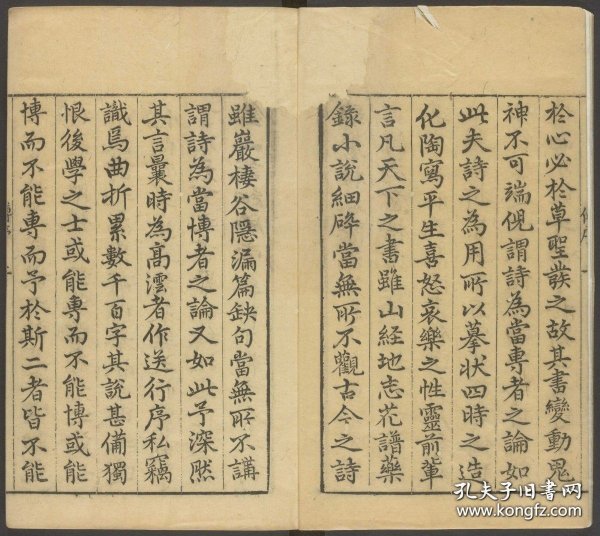 於心必於草聖發之故其書變動鬼
神不可端倪謂詩為當專者之論如
此夫詩之為用所以摹状四時之造
化陶寫平生喜怒哀樂之性靈前輩
言凡天下之書雖山経地志花譜藥
錄小說細碎當無所不觀古今之詩
雖巖棲谷隱漏篇缺句當無所不講
謂詩為當博者之論又如此予深然
其言曩時為高澐者作送行序私竊
識焉曲折累數千百字其說甚備獨
恨後學之士或能專而不能博或能
博而不能專而予於斯二者皆不能
孔夫子旧书网
www.kongfz.com